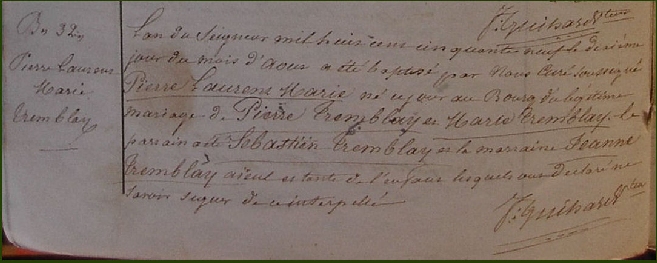 F: Guihard Ptre
Bn 32
Pierre Laurens
Marie
Tremblay
L'an du Seigneur mil huit cent cinquante neuf le dixième
jour du mois d'Aout a été baptisé par Nous Curé soussigné
Pierre Laurens Marie né ce jour au Bourg du légitime
mariage de Pierre Tremblay et Marie Tremblay. le
parrain a été Sébastien Tremblay et la marraine Jeanne
Tremblay aieul et tante de l'enfant lesquels ont déclaré ne
savoir signer de ce interpellé
F: Guihard Ptre